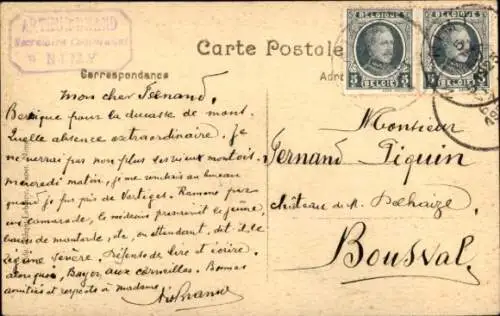 ARTHUR BRAND
Secrétaire Communal
NIMY
Carte Postale
BELGIQUE BELGIË
5 5
BELGIQUE BELGIË
Correspondance
Mon cher Fernand.
pour la ducasse de mont.
Quelle absence extraordinaire. Je
ne verrai pas non plus les vieux montois.
Mercredi matin, je me rendais au bureau
quand je fus pris de Vertiges. Ramené par
un camarade, le médecin prescrivit le jeûne,
bains de moutarde, etc, en attendant, dit-il le
régime sévère. Défense de lire et écrire.
Alors quoi, Bayer aux corneilles. Bonnes
amitiés et respects à madame
Monsieur
Fernand Piquin
Château de M. Delhaize
Bousval